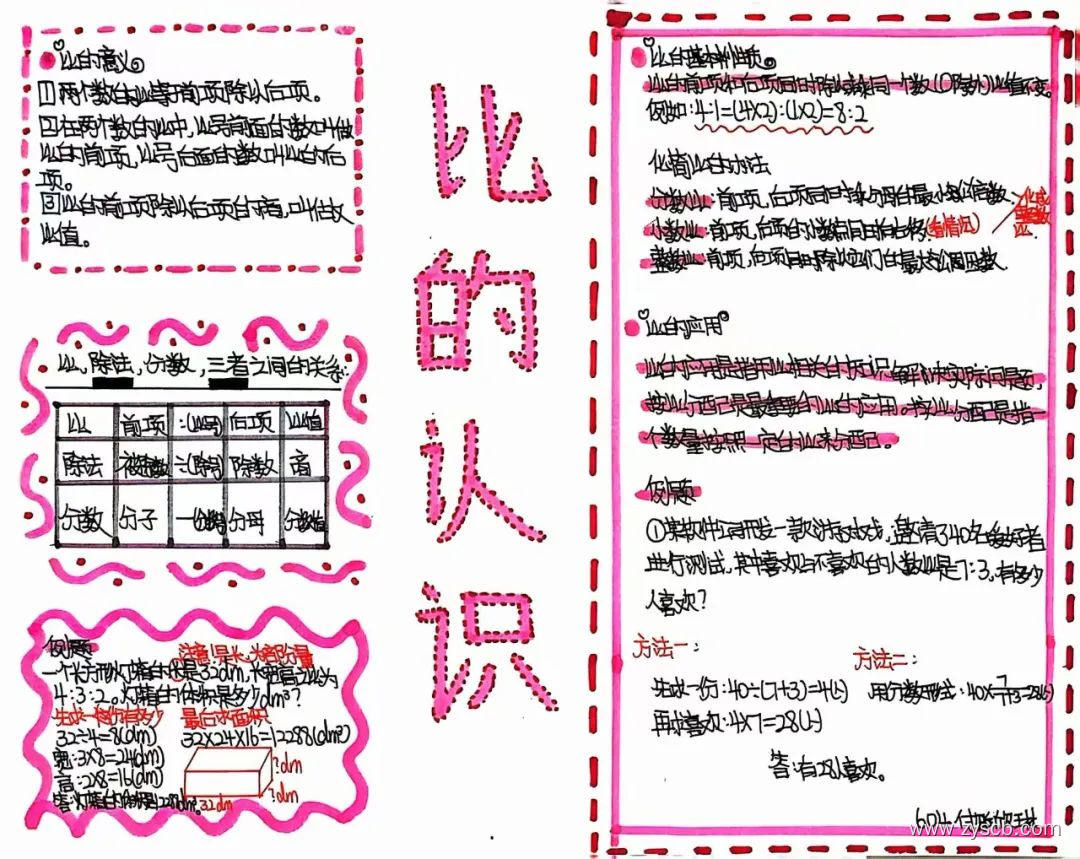 比的意义。
①两个数的比等于前项除以后项。
②在两个数的比中,比号前面的数叫做
比的前项,比号后面的数叫比的后
项。
③比的前项除以后项的商,叫做
比值。
比,除法,分数,三者之间的关系:
比 前项 :(比号) 后项 比值
除法 被除数 ÷(除号) 除数 商
分数 分子 —(分数线) 分母 分数值
例题
注意!是长,
一个长方形灯箱的长是32dm,长宽高之比为
4:3:2。灯箱的体积是多少dm³?
先求一份有多少 最后求体积
32÷4=8(dm) 32×24×16=12288(dm³)
宽:3×8=24(dm)
高:2×8=16(dm)
?dm
?dm
32dm
答:灯箱的体积是12288dm³。
比的认识
比的基本性质。
比的前项和后项同时乘或除以同一个数(0除外)比值不变。
例如:4:1=(4×2):(1×2)=8:2
化简比的方法
分数比:前项,后项同时乘分母的最小公倍数。
小数比:前项,后项的小数点同时向右移(看情况)
整数比:前项,后项同时除以它们的最大公因数
化成
整数
比
比的应用
比的应用是指用比相关的知识,解决实际问题,
按比分配是最重要的比的应用。按比分配是指一
个数量按照一定的比来分配。
例题
①某软件公司开发一款游戏,邀请了40名爱好者
进行测试,其中喜欢与不喜欢的人数比是7:3,有多少
人喜欢?
方法一: 方法二:
先求一份:40÷(7+3)=4(人) 用分数形式:40×7/7+3=28(人)
再求喜欢:4×7=28(人)
答:有28人喜欢。
604
www.zyscb.com